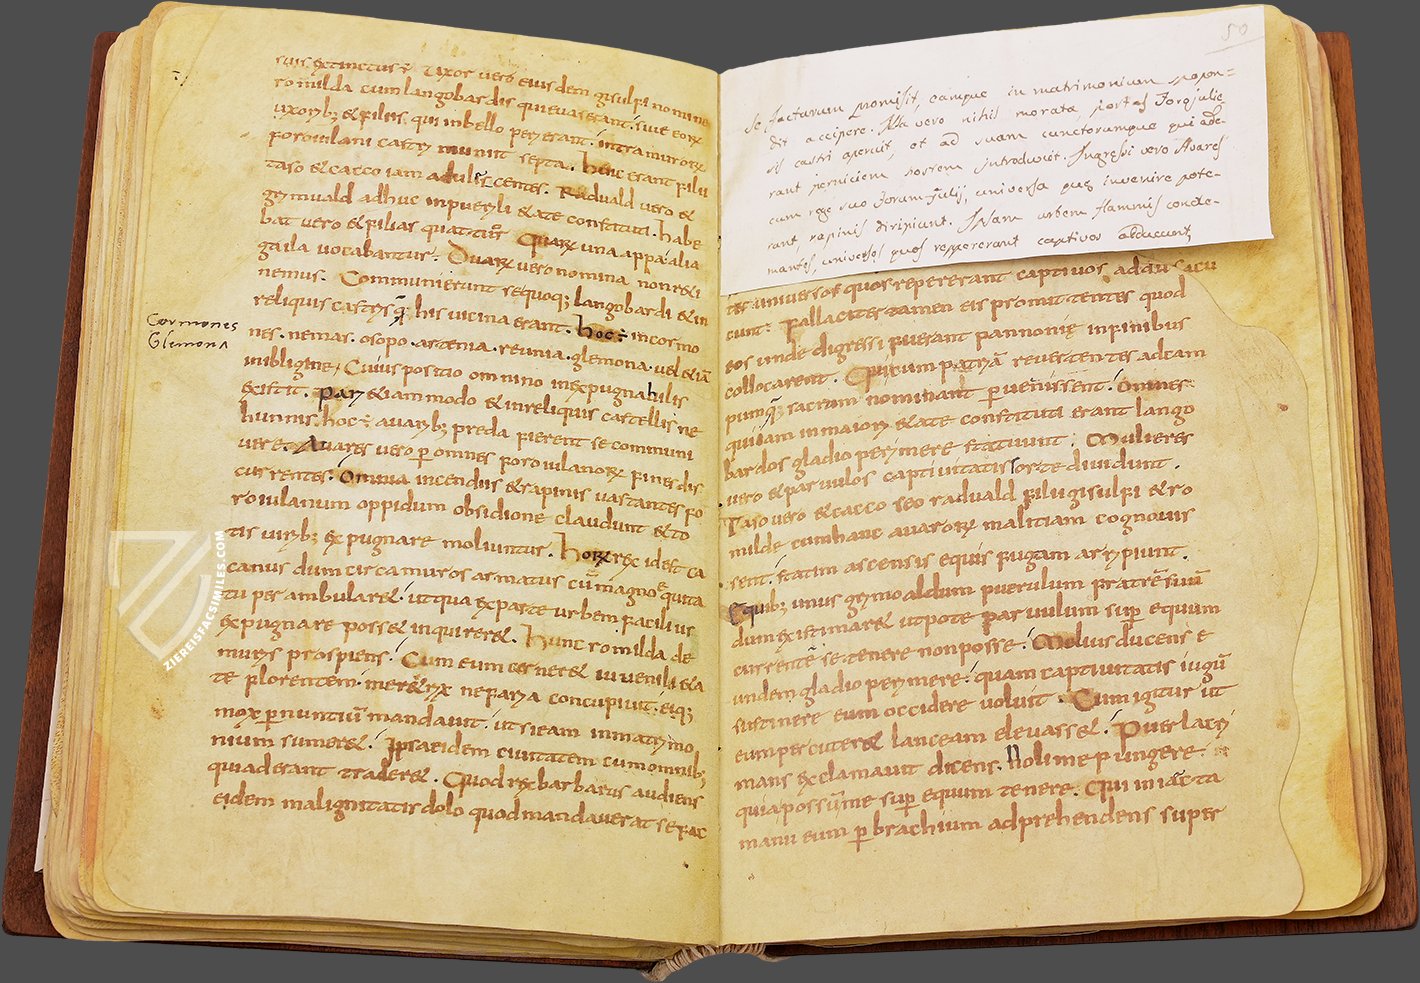 suis extinctus ÷ Uxor vero eiusdem gisulfi nomine
romilda cum langobardis qui evaserant. sive eorꝝ
uxoribꝫ & filiis. qui in bello perierant. intra murorꝝ
foroiulani castri munut septa. huic erant filii
taso & cacco iam adulescentes. Raduald vero &
grimuald adhuc in puerili &ate constituti. habe
bat vero & filias quattur. Quarꝝ una appa. alia
gaila vocabantur. Duarꝝ vero nomina non r&i
nemus. Communierunt se quoqꝫ langobardi & in
reliquis castris que his vicina erant. hoc ÷ in cormo
nes. nemas. osopo. artenia. reunia. glemona. vel &iā
in ibligine, Cuius positio omnino inexpugnabilis
existit. Pari &iam modo & in reliquis castellis ne
hunnis. hoc ÷ avaribꝫ preda fierent se communi
vere. Avares vero ꝑ omnes foroiulanorꝝ fines dis
currentes. Omnia incendiis & rapinis vastantes fo
roiulanum oppidum obsidione claudunt & to
tis viribꝫ expugnare moliuntur. horꝝ rex idest ca
canus dum circa muros armatus cū magno equita
tu perambular&. ut qua ex parte urbem facilius
expugnare poss& inquirer&. Hunc romilda de
muris prospiens. Cum eum cerner& iuvenili &a
te florentem. mer&rix nefaria concupivit. eiqꝫ
mox ꝑ nuntiū mandavit. ut si eam in matrimo
nium sumer&. Ipsa eidem civitatem cum omnibꝫ
qui aderant trader&. Quod rex barbarus audiens
eidem malignitatis dolo quod mandaverat se fac
Cormones
Glemona
50
se facturum promisit, eamque in matrimonium spopon=
dit accipere. Illa vero nihil morata, portas Forojulię
sis castri aperuit, et ad suam cunctorumque qui ade=
rant perniciem hostem introduxit. Ingressi vero Avares
cum rege suo Forumjulij, universa quę invenire pote-
rant rapinis diripiunt. Ipsam urbem flammis concre-
mantes, universos quos reppererant captivos abducunt
tes. universos quos repererant captivos adducu
cunt. Fallaciter tamen eis promittentes quod
eos unde digressi fuerant pannonię in finibus
collocarent. Qui cum patriā revertentes ad cam
pum quē sacrum nominant ꝑvenissent. Omnes
quiiam in maiori &ate constituti erant lango
bardos gladio perimere statuunt. Mulieres
vero & parvulos captivitatis sorte dividunt.
Taso vero & cacco seo raduald filii gisulfi & ro
milde cum hanc avarorꝝ malitiam cognovis
sent. statim ascensis equis fugam arripiunt.
E quibꝫ unus grimoaldum puerulum fratrē suū
dum existimar& utpote parvulum suꝑ equum
currentē se tenere non posse. Melius ducens e
undem gladio perimere. quam captivitatis iugū
sustinere eum occidere voluit. Cum igitur ut
eum percuter& lanceam elevass&. Puer lacri
mans exclamavit dicens. Noli me pungere
quia possum me suꝑ equum tenere. Qui iniecta
manu eum ꝑ brachium adprehendens super
ZIEREISFACSIMILES.COM